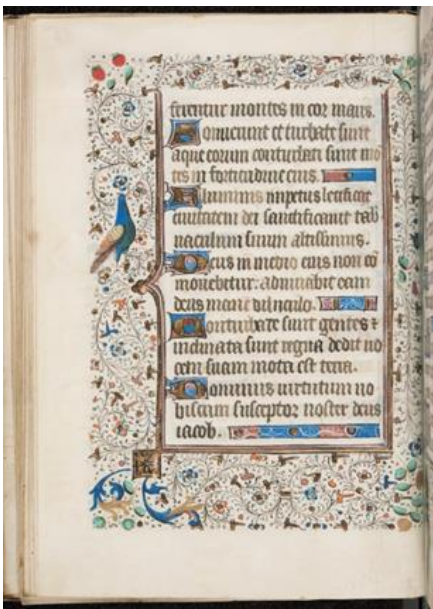 ferentur montes in cor maris.
Sonuerunt et turbate sunt
aque eorum conturbati sunt mo
tes in fortitudine eius.
Fluminis impetus letificat
civitatem dei sanctificavit tab
naculum suum altissimus.
Deus in medio eius non co
movebitur: adiuvabit eam
deus mane diluculo.
Conturbate sunt gentes et
inclinata sunt regna dedit vo
cem suam mota est terra.
Dominus virtutum no
biscum susceptor noster deus
iacob.